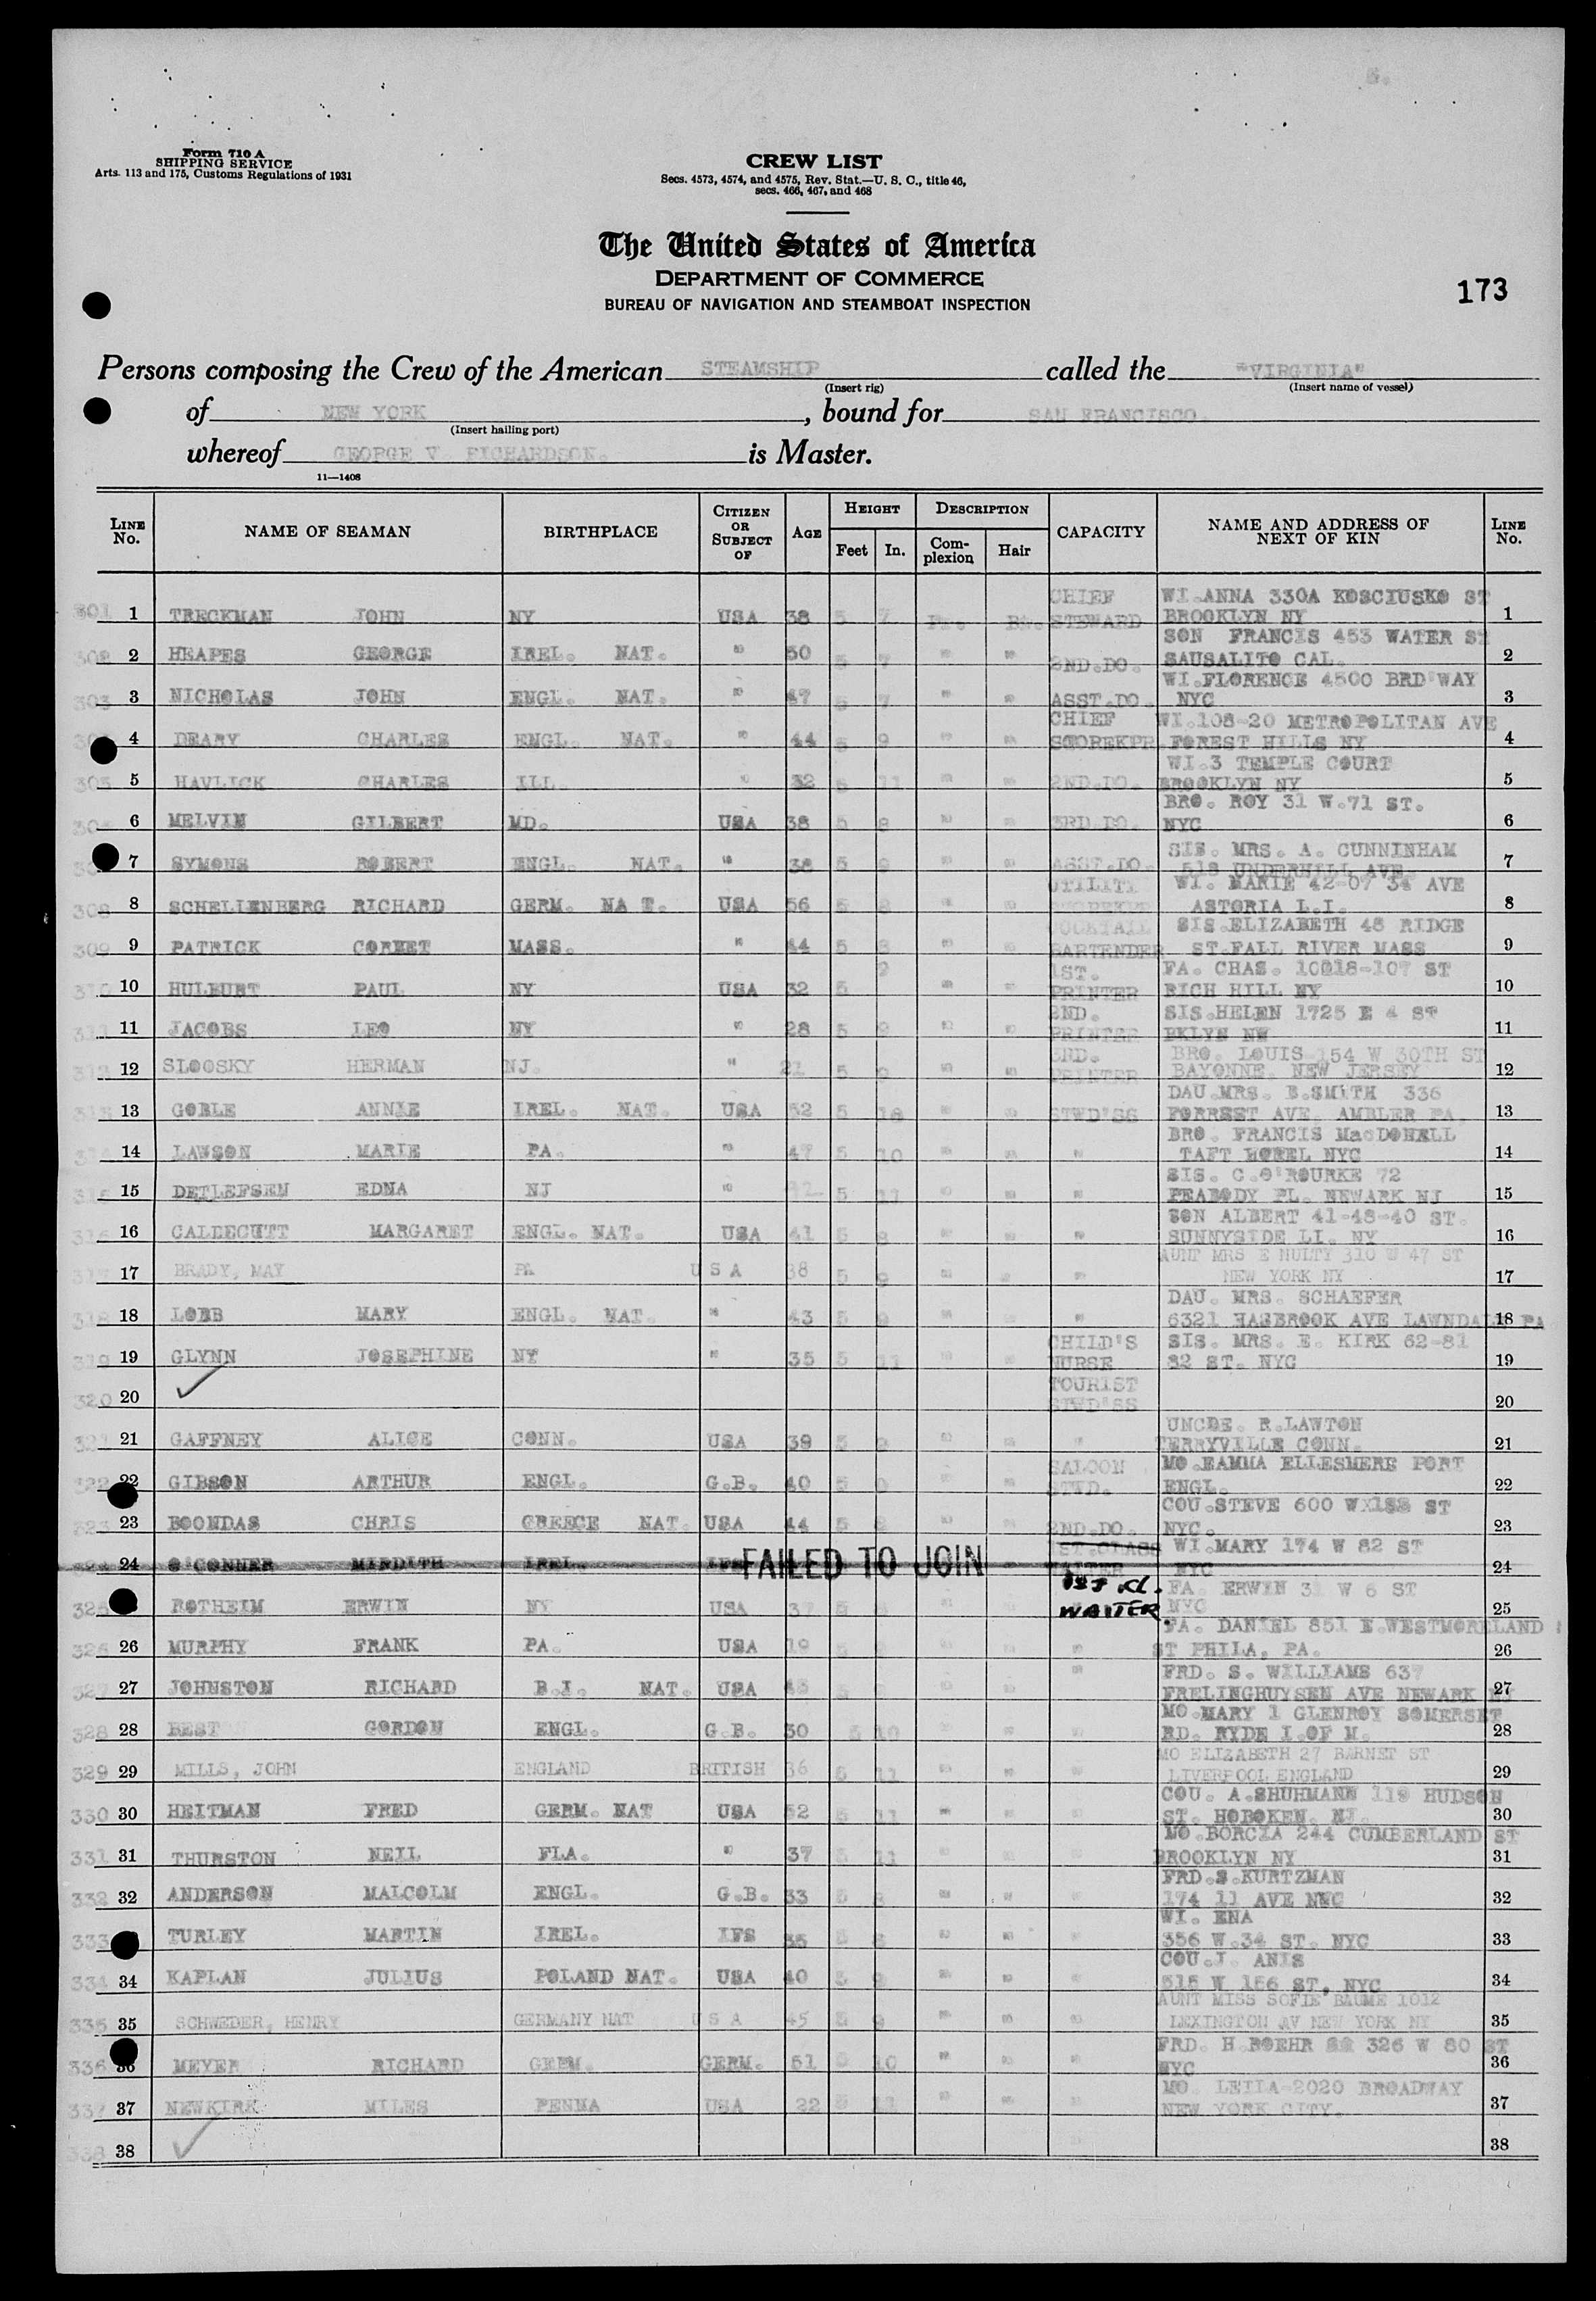 Form 710 A
SHIPPING SERVICE
Arts. 113 and 175, Customs Regulations of 1931
CREW LIST
Secs. 4573, 4574, and 4575, Rev. Stat.—U. S. C., title 46,
secs. 466, 467, and 468
The United States of America
DEPARTMENT OF COMMERCE
BUREAU OF NAVIGATION AND STEAMBOAT INSPECTION
173
Persons composing the Crew of the American STEAMSHIP called the "VIRGINIA"
(Insert rig) (Insert name of vessel)
of NEW YORK, bound for SAN FRANCISCO.
(Insert hailing port)
whereof GEORGE V. RICHARDSON. is Master.
11—1408
LINE No. NAME OF SEAMAN BIRTHPLACE CITIZEN OR SUBJECT OF AGE HEIGHT Feet In. DESCRIPTION Complexion Hair CAPACITY NAME AND ADDRESS OF NEXT OF KIN LINE No.
301 1 TRECKMAN JOHN NY USA 38 5 7 CHIEF STEWARD WI.ANNA 330A KOSCIUSKO ST BROOKLYN NY 1
302 2 HEAPES GEORGE IREL. NAT. " 50 5 7 " " 2ND.DO. SON FRANCIS 453 WATER ST SAUSALITO CAL. 2
303 3 NICHOLAS JOHN ENGL. NAT. " 47 5 7 " " ASST.DO. WI.FLORENCE 4500 BRD'WAY NYC 3
4 DEARY CHARLES ENGL. NAT. " 44 5 9 " " CHIEF STOREKPR. WI.108-20 METROPOLITAN AVE FOREST HILLS NY 4
305 5 HAVLICK CHARLES ILL. " 32 5 11 " " 2ND.DO. WI.3 TEMPLE COURT BROOKLYN NY 5
306 6 MELVIN GILBERT MD. USA 38 5 8 " " 3RD.DO. BRO. ROY 31 W.71 ST. NYC 6
7 SYMONS ROBERT ENGL. NAT. " 38 5 9 " " ASST.DO. SIS. MRS. A. CUNNINHAM 518 UNDERHILL AVE. 7
308 8 SCHELLENBERG RICHARD GERM. NA T. USA 56 5 8 " " UTILITY WI. MARIE 42-07 34 AVE ASTORIA L.I. 8
309 9 PATRICK CORNET MASS. " 44 5 8 " " COCKTAIL BARTENDER SIS.ELIZABETH 48 RIDGE ST.FALL RIVER MASS 9
310 10 HULBURT PAUL NY USA 32 5 9 " " 1ST. PRINTER FA. CHAS. 10018-107 ST RICH HILL NY 10
311 11 JACOBS LEO NY " 28 5 9 " " 2ND. PRINTER SIS.HELEN 1725 E 4 ST BKLYN NW 11
312 12 SLOOSKY HERMAN NJ. " 21 5 9 " " 3RD. PRINTER BRO. LOUIS 154 W 30TH ST BAYONNE. NEW JERSEY 12
313 13 GOBLE ANNIE IREL. NAT. USA 52 5 10 " " STWD'SS DAU.MRS. B.SMITH 336 FORREST AVE. AMBLER PA. 13
314 14 LAWSON MARIE PA. " 47 5 10 " " " BRO. FRANCIS MacDONALL TAFT HOTEL NYC 14
315 15 DETLEFSEN EDNA NJ " 5 11 " " " SIS. C.O'ROURKE 72 PEABODY PL. NEWARK NJ 15
316 16 CALDECUTT MARGARET ENGL. NAT. USA 41 5 8 " " " SON ALBERT 41-48-40 ST. SUNNYSIDE LI. NY 16
317 17 BRADY, MAY PA U S A 38 5 9 " " " AUNT MRS E NULTY 310 W 47 ST NEW YORK NY 17
318 18 LOBB MARY ENGL. NAT. " 43 5 9 " " " DAU. MRS. SCHAEFER 6321 HASBROOK AVE LAWNDALE PA 18
319 19 GLYNN JOSEPHINE NY " 35 5 11 " " CHILD'S NURSE SIS. MRS. E. KIRK 62-81 82 ST. NYC 19
320 20 TOURIST STWD'SS 20
321 21 GAFFNEY ALICE CONN. USA 39 5 9 " " " UNCDE. R.LAWTON TERRYVILLE CONN. 21
322 22 GIBSON ARTHUR ENGL. G.B. 40 5 " SALOON STWD. MO.EAMMA ELLESMERE PORT ENGL. 22
323 23 BOONDAS CHRIS GREECE NAT. USA 44 5 8 " " 2ND.DO. COU.STEVE 600 WX188 ST NYC. 23
324 24 O'CONNER MIRDITH IREL. FAILED TO JOIN 1ST.CLASS WAITER WI.MARY 174 W 82 ST NYC 24
325 ROTHEIM ERWIN NY USA 37 5 1st Cl. WAITER FA. ERWIN 31 W 6 ST NYC 25
326 26 MURPHY FRANK PA. USA 19 5 " FA. DANIEL 851 E.WESTMORELAND ST PHILA, PA. 26
327 27 JOHNSTON RICHARD B.I. NAT. USA 43 5 " FRD. S. WILLIAMS 637 FRELINGHUYSEN AVE NEWARK NJ 27
328 28 BEST GORDON ENGL. G.B. 30 5 10 " " " MO.MARY 1 GLENROY SOMERSET RD. RYDE I.OF M. 28
329 29 MILLS, JOHN ENGLAND BRITISH 36 5 11 " " " MO ELIZABETH 27 BARNET ST LIVERPOOL ENGLAND 29
330 30 HEITMAN FRED GERM. NAT USA 52 5 11 " " " COU. A.SHUHMANN 118 HUDSON ST. HOBOKEN. NJ. 30
331 31 THURSTON NEIL FLA. " 37 5 11 " " " MO.BORCIA 244 CUMBERLAND ST BROOKLYN NY 31
332 32 ANDERSON MALCOLM ENGL. G.B. 33 5 8 " " " FRD.S.KURTZMAN 174 11 AVE NYC 32
333 TURLEY MARTIN IREL. IFS 35 5 8 " " " WI. ENA 356 W.34 ST. NYC 33
334 34 KAPLAN JULIUS POLAND NAT. USA 40 5 9 " " " COU.J. ANIS 515 W 156 ST. NYC 34
335 35 SCHWEDER, HENRY GERMANY NAT U S A 45 5 9 " " " AUNT MISS SOFIE BAUME 1012 LEXINGTON AV NEW YORK NY 35
336 36 MEYER RICHARD GERM. GERM. 51 5 10 " " " FRD. H.ROEHR 326 W 80 ST NYC 36
337 37 NEWKIRK MILES PENNA USA 22 5 11 " " " MO. LEILA-2020 BROADWAY NEW YORK CITY. 37
338 38 38